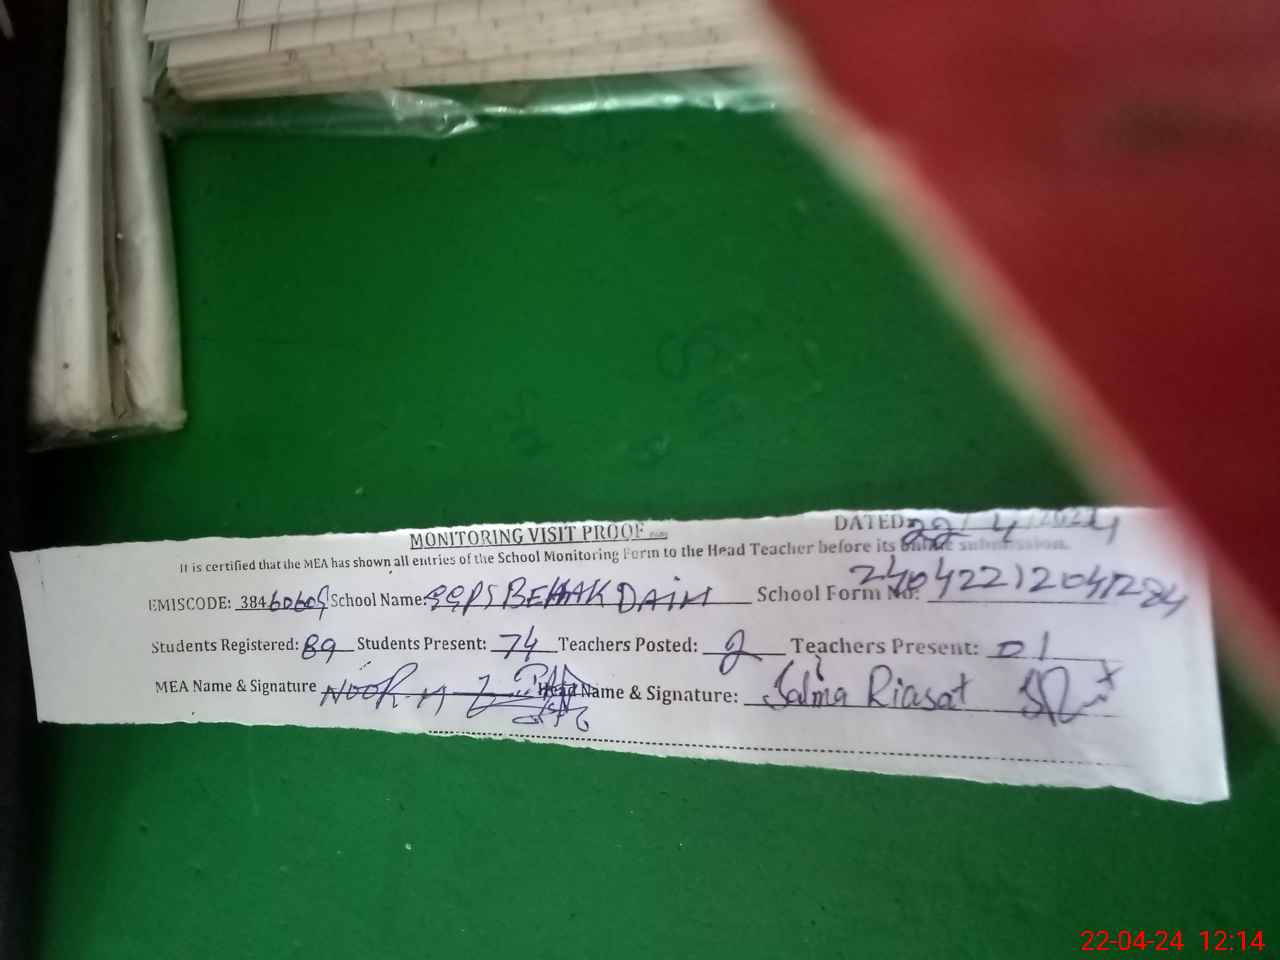 MONITORING VISIT PROOF DATED 22/4/2024
It is certified that the MEA has shown all entries of the School Monitoring Form to the Head Teacher before its online submission.
EMISCODE: 38460609 School Name: GGPS BEHAK DAIM School Form No: 2404221204
Students Registered: 89 Students Present: 74 Teachers Posted: 2 Teachers Present: 01
MEA Name & Signature NOOR M Head Name & Signature: Salma Riasat
22-04-24 12:14